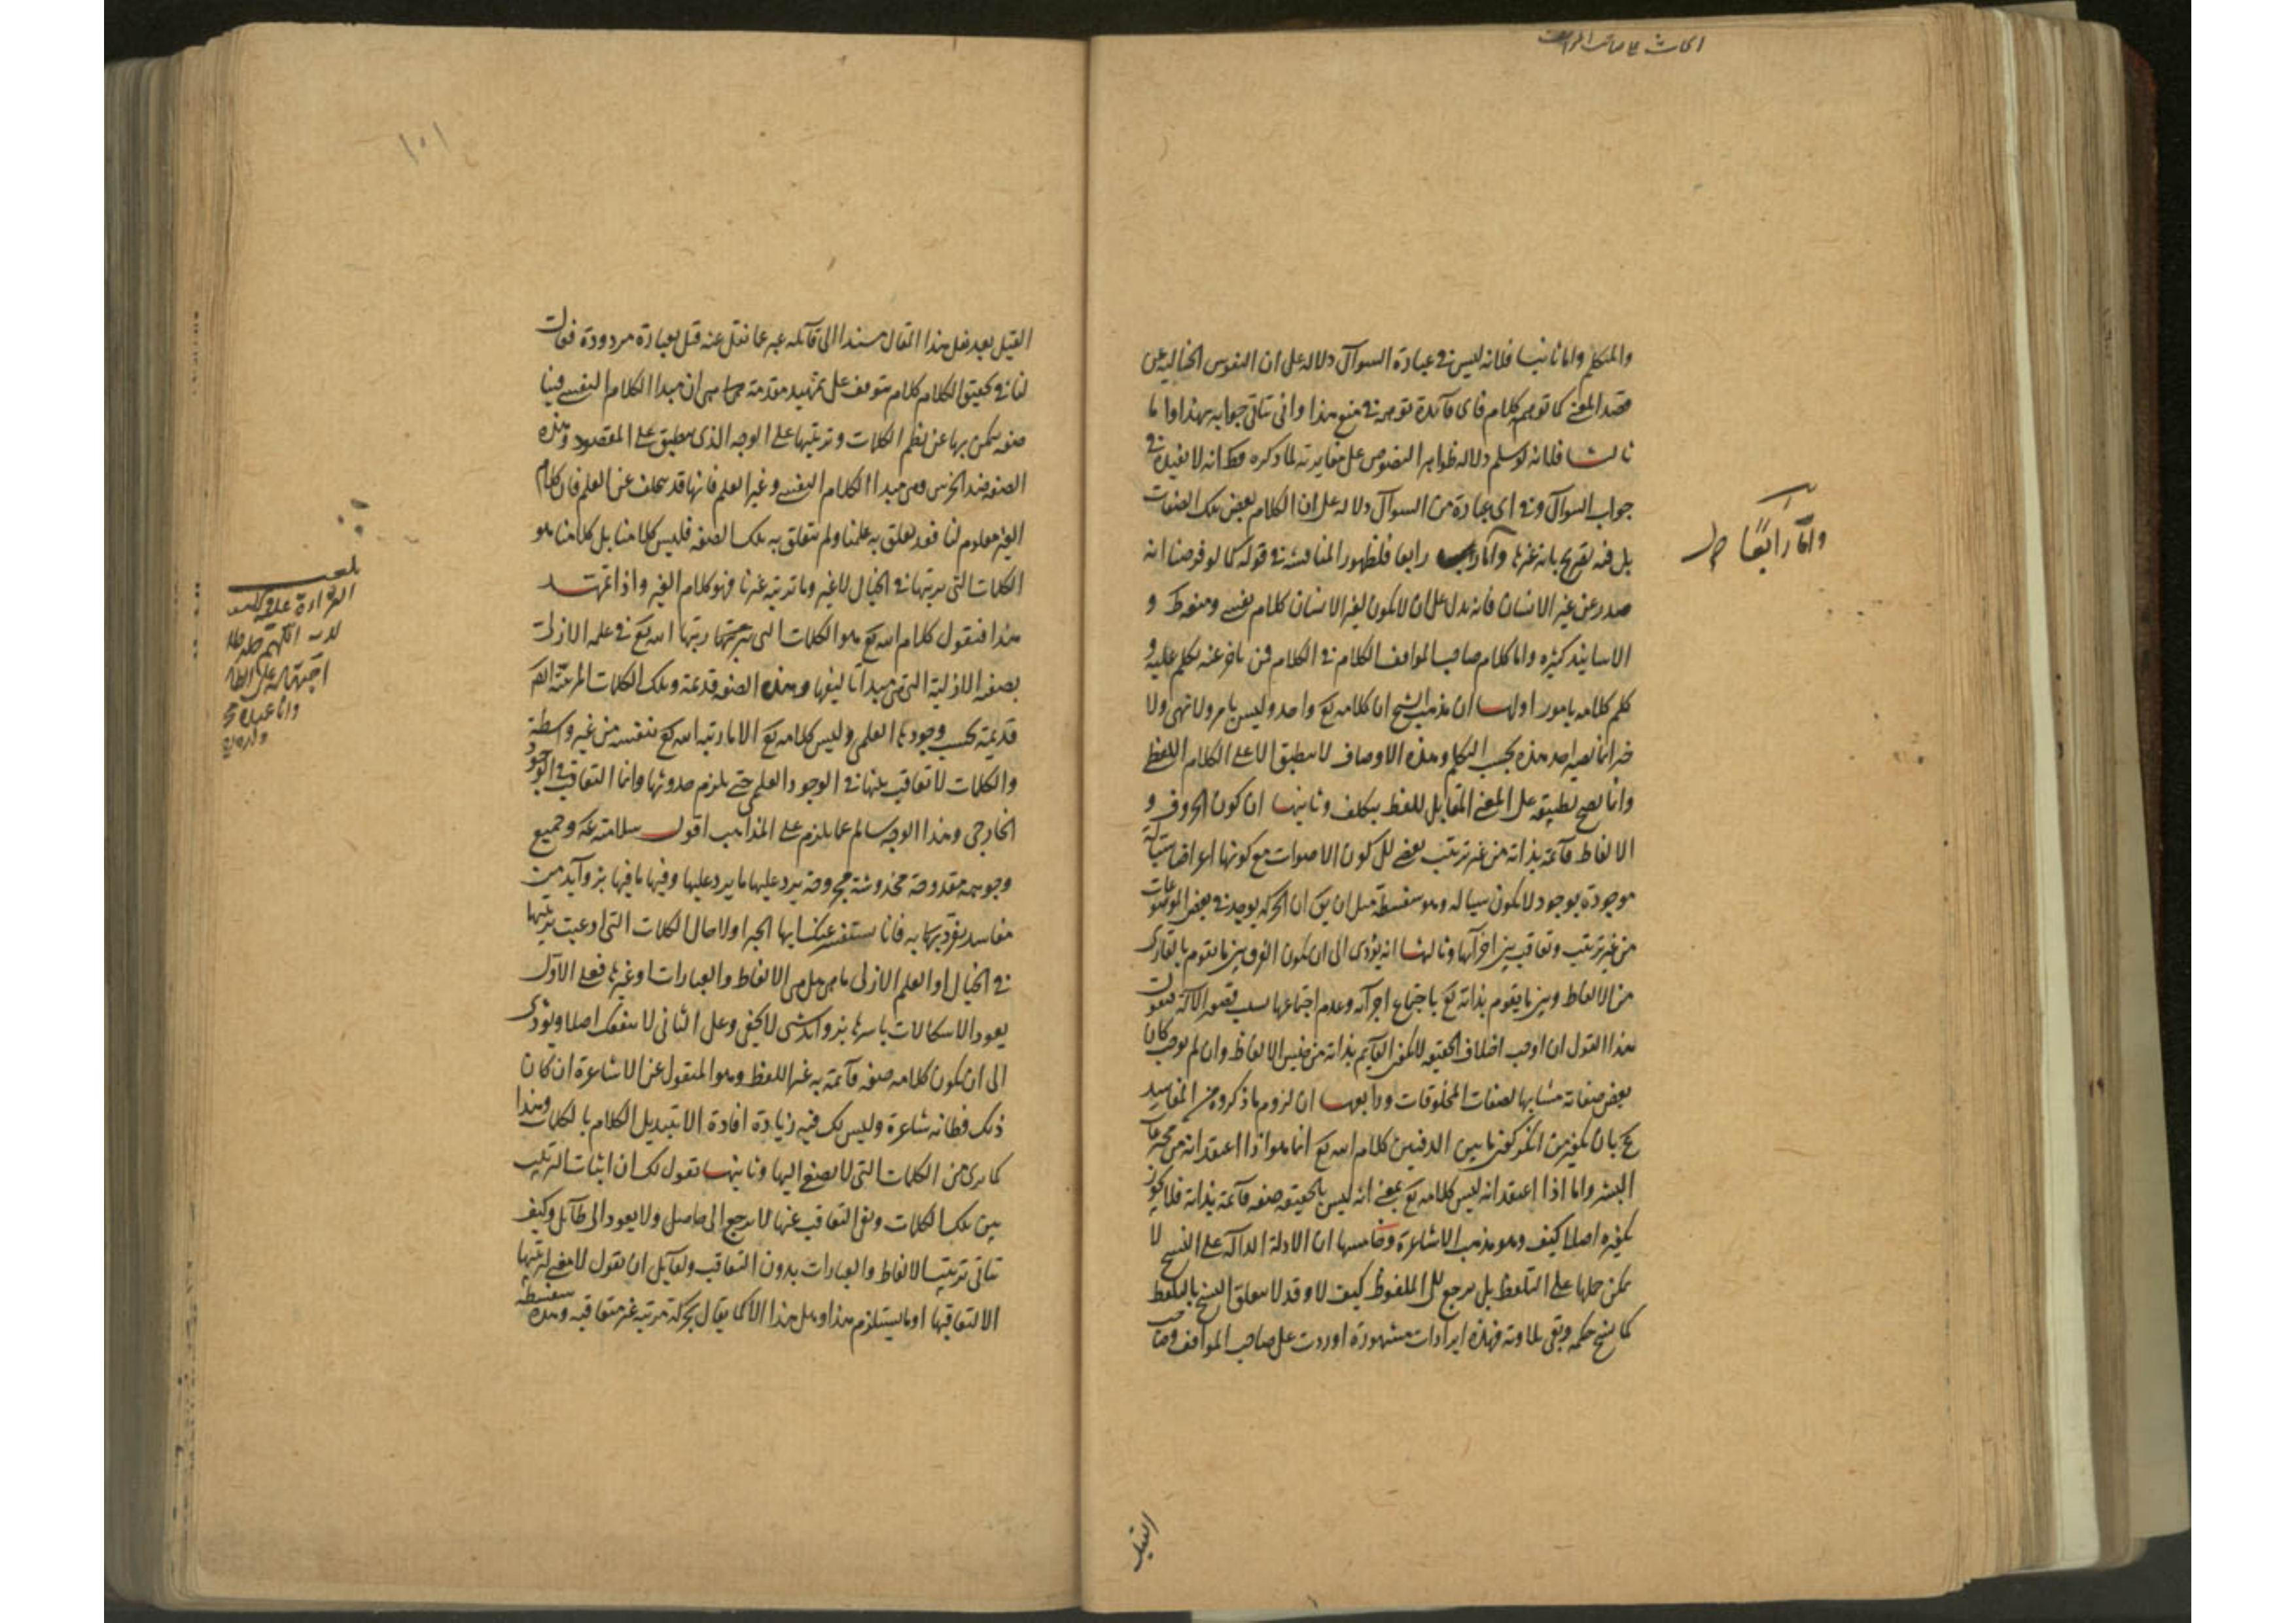 ابحاث على صاحب المواقف
والمتكلم واما ثانيا فلانه ليس في عبارة السوال دلالة على ان النفوس الخالية عن
قصد المعنى كما توهم كلام فاى فائدة توجه في منع هذا وانى يتاتى جوابه بهذا واما
ثالثا فلانه لو سلم دلالة ظواهر النصوص على مغايرته لما ذكره فظ انه لا يفيده في
جواب السوال وفي اى عبارة من السوال دلالة على ان الكلام بعض تلك الصفات
بل فيه تصريح بانه غيرها واما رابعا فلظهور المناقشة في قوله كما لو فرضنا انه
واما رابعا صح
صدر عن غير الانسان فانه يدل على ان لا يكون لغير الانسان كلام نفسي ومنعه ظ و
الاسانيد كثيرة واما كلام صاحب المواقف الكلام في الكلام فمن تاخر عنه تكلم عليه و
كلم كلامه بامور اولها ان مذهب الشيخ ان كلامه تع واحد وليس بامر ولا نهى ولا
خبر انما يصير احد هذه بحسب التكلم وهذه الاوصاف لا ينطبق الا على الكلام اللفظ
وانما يصح تطبيقه على المعنى المقابل للفظ بتكلف وثانيها ان كون الحروف و
الالفاظ قائمة بذاته من غير ترتيب يفضى لى كون الاصوات مع كونها اعراضا سيالة
موجودة بوجود لا يكون سيالة وهو سفسطة مثل ان يق ان الحركة يوجد في بعض الموضوعات
من غير ترتيب وتعاقب بين اجزائها وثالثها انه يؤدى الى ان يكون الفرق بين ما يقوم بالقارى
من الالفاظ وبين ما يقوم بذاته تع باجتماع اجزائه وعدم اجتماعها بسبب قصور الالة فنقول
هذا القول ان اوجب اختلاف الحقيقة لا يكون القايم بذاته من جنس الالفاظ وان لم يوجب كان
بعض صفاته مشابها لصفات المخلوقات ورابعها ان لزوم ما ذكروه من المفاسد
مم بان تكفير من انكر كون ما بين الدفتين كلام الله تع انما هو اذا اعتقد انه من مخترعات
البشر واما اذا اعتقد انه ليس كلامه تع بمعنى انه ليس بالحقيقة صفة قائمة بذاته فلا يجوز
تكفيره اصلا كيف وهو مذهب الاشاعرة وخامسها ان الادلة الدالة على النسخ لا
يمكن حملها على التلفظ بل يرجع لى الملفوظ كيف لا وقد لا يتعلق النسخ بالتلفظ
كما ينسخ حكمه وبقى تلاوته فهذه ايرادات مشهورة اوردت على صاحب المواقف وصاحب
القيل
١٥١
القيل بعد نقل هذا المقال مسندا الى قائله عبر عما نقل عنه قبل بعبارة مردودة فقال
لنا في تحقيق الكلام كلام يتوقف على تمهيد مقدمة هى ان مبدا الكلام النفسي فينا
صفة يتمكن بها عن نظم الكلمات وترتيبها على الوجه الذى ينطبق على المقصود وهذه
الصفة ضد الخرس وهى مبدا الكلام النفسي وغير العلم فانها قد يتخلف عن العلم فان كلام
الغير معلوم لنا فقد تعلق به علمنا ولم يتعلق به تلك الصفة فليس كلامنا بل كلامنا هو
الكلمات التى رتبها في الخيال لا غير وما ترتبه غيرنا فهو كلام الغير واذا تمهد
هذا فنقول كلام الله تع هو الكلمات التى رتبها الله تع في علمه الازلى
بصفته الازلية التى هى مبدا تاليفها وهذه الصفة قديمة وتلك الكلمات المرتبة ايضا
قديمة بحسب وجودها العلمى وليس كلامه تع الا ما رتبه الله تع بنفسه من غير واسطة
والكلمات لا تعاقب بينها في الوجود العلمى حتى يلزم حدوثها وانما التعاقب في الوجود
الخارجى وهذا الوجه سالم عما يلزم على المذاهب اقول سلامته مم وجميع
وجوهه مقدوحة مخدوشة مجروحة يرد عليها ما يرد عليها وفيها ما فيها بزوايد من
مفاسد تفرد بها به فانا نستفسر عنك ايها الحبر اولا حال الكلمات التى ادعيت ترتيبها
في الخيال او العلم الازلى ما هى هل هى الالفاظ والعبارات او غيرها فعلى الاول
يعود الاشكالات باسرها بزوايد شتى لا يخفى وعلى الثانى لا ينفعك اصلا ويؤدى
الى ان يكون كلامه صفة قائمة به غير اللفظ وهو المنقول عن الاشاعرة ان كان
ذلك وليس لك فيه زيادة افادة الا تبديل الكلام بالكلمات وهذا
كما ترى من الكلمات التى لا يصغى اليها وثانيها نقول لك ان اثبات الترتيب
بين تلك الكلمات ونفى التعاقب عنها لا يرجع الى حاصل ولا يعود الى طائل وكيف
يتاتى ترتيب الالفاظ والعبارات بدون التعاقب ولقايل ان يقول لا معنى لترتيبها
الا لتعاقبها او ما يستلزم هذا وهل هذا الا كما يقال حركة مرتبة غير متعاقبة وهذه سفسطة
بلغت
القراءة عليه